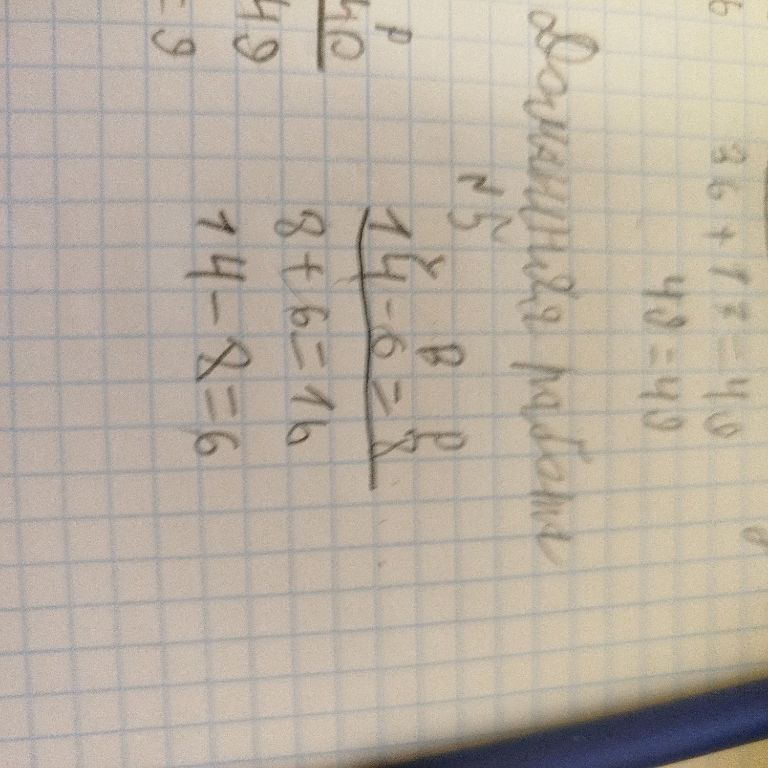 6
36 + 17 = 49
49 = 49
Домашняя работа
№5
р у В р
40 14 - 6 = 8
49 8 + 6 = 16
= 9 14 - 8 = 6